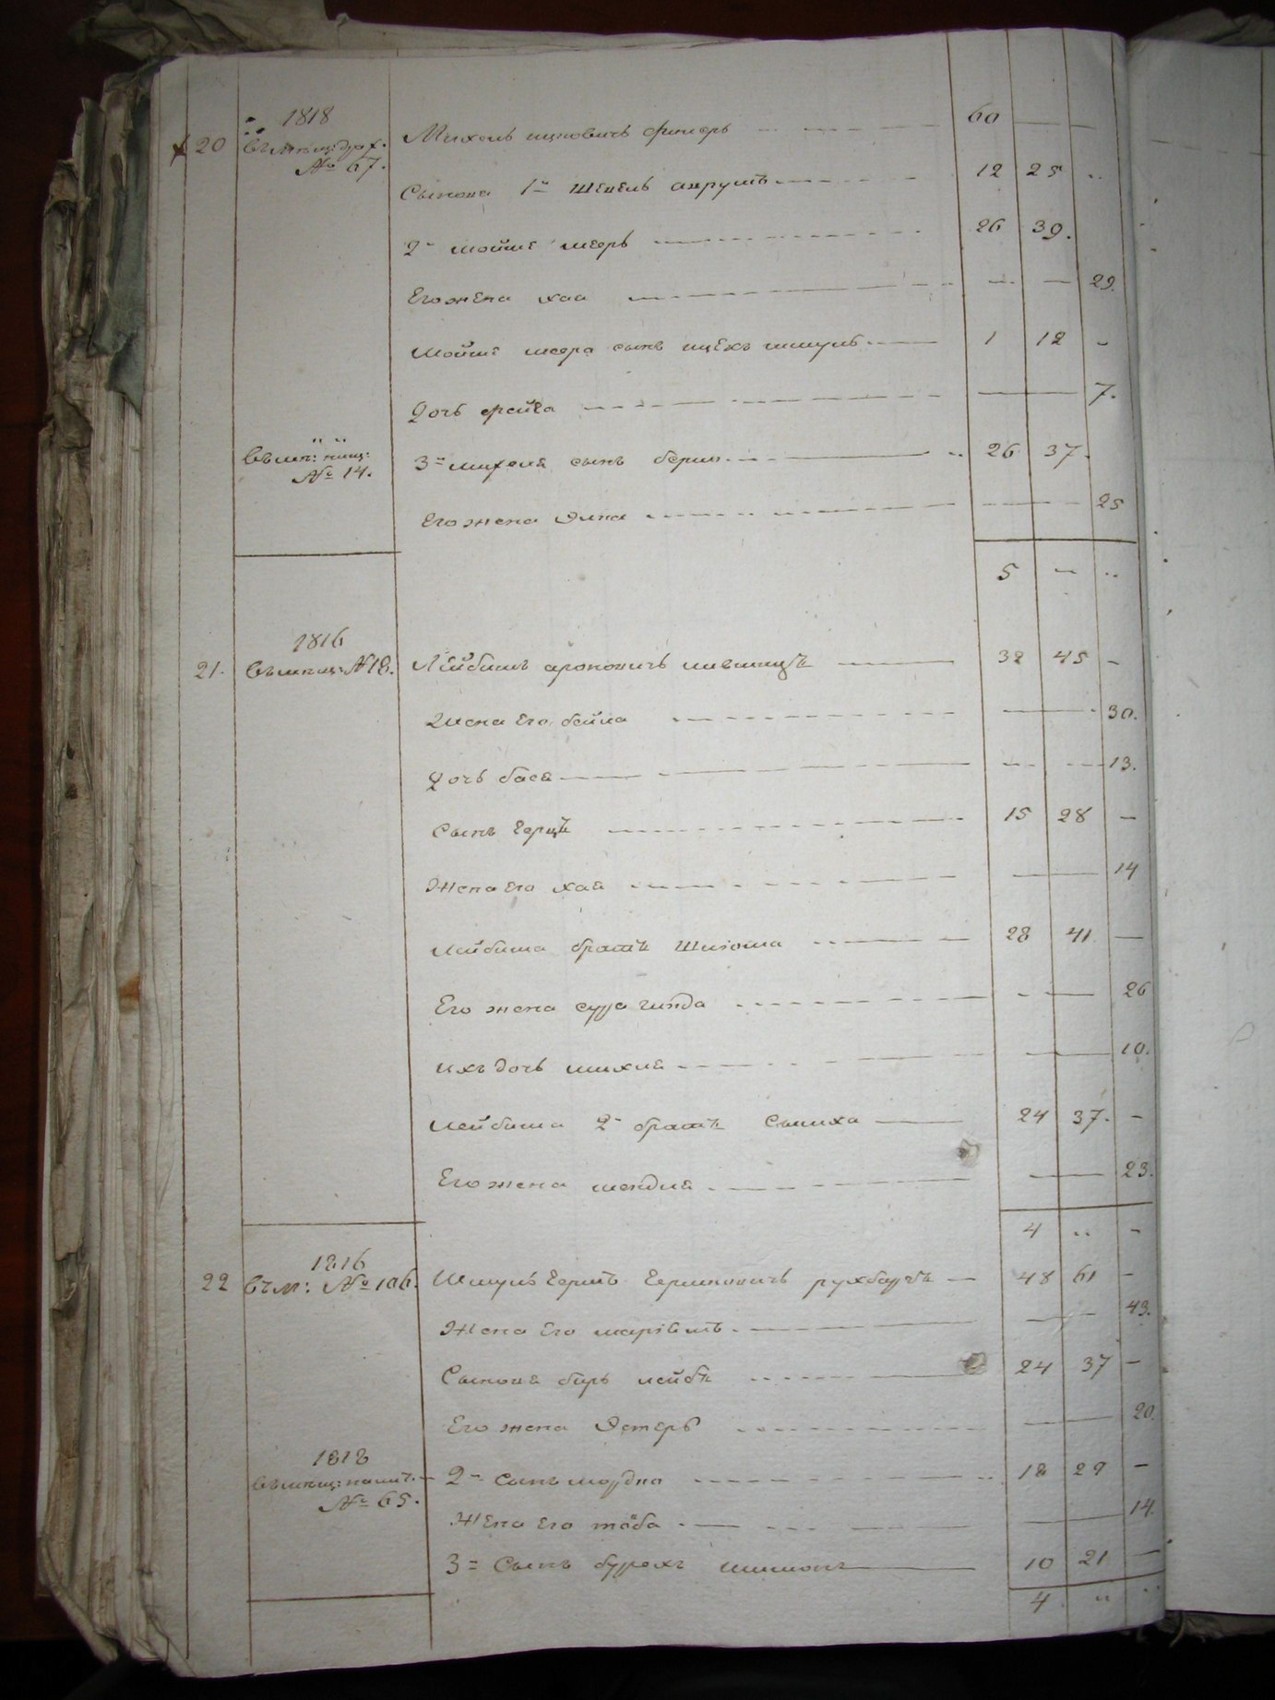 20 1818 Михель ицковичъ финеръ 60
№ 67.
Сынова 1й 12 25
2й мойше мееръ 26 39.
Его жена хая 29.
мойше меера сынъ ицехъ шмуль 1 12
дочь фейга 7.
№ 14. 3й михеля сынъ берко 26 37.
Его жена Элка 25
5
1816
21. №18. Лейбишъ ароновичъ 32 45
Жена его бейла 30.
дочь бася 13.
Сынъ герцъ 15 28
Жена его хая 14
лейбиша братъ Шліома 28 41
Его жена сура гинда 26
ихъ дочь 10.
лейбиша 2й братъ Симха 24 37.
Его жена мендля 23.
4
1816
22 № 106. Шмуль гершъ гершковичъ рухбаръ 48 61
Жена его маріемъ 43.
Сынове беръ лейбъ 24 37
Его жена Эстеръ 20.
1818
№ 65. 2й сынъ мордко 18 29
Жена его тоба 14.
3й Сынъ бурехъ шимонъ 10 21
4